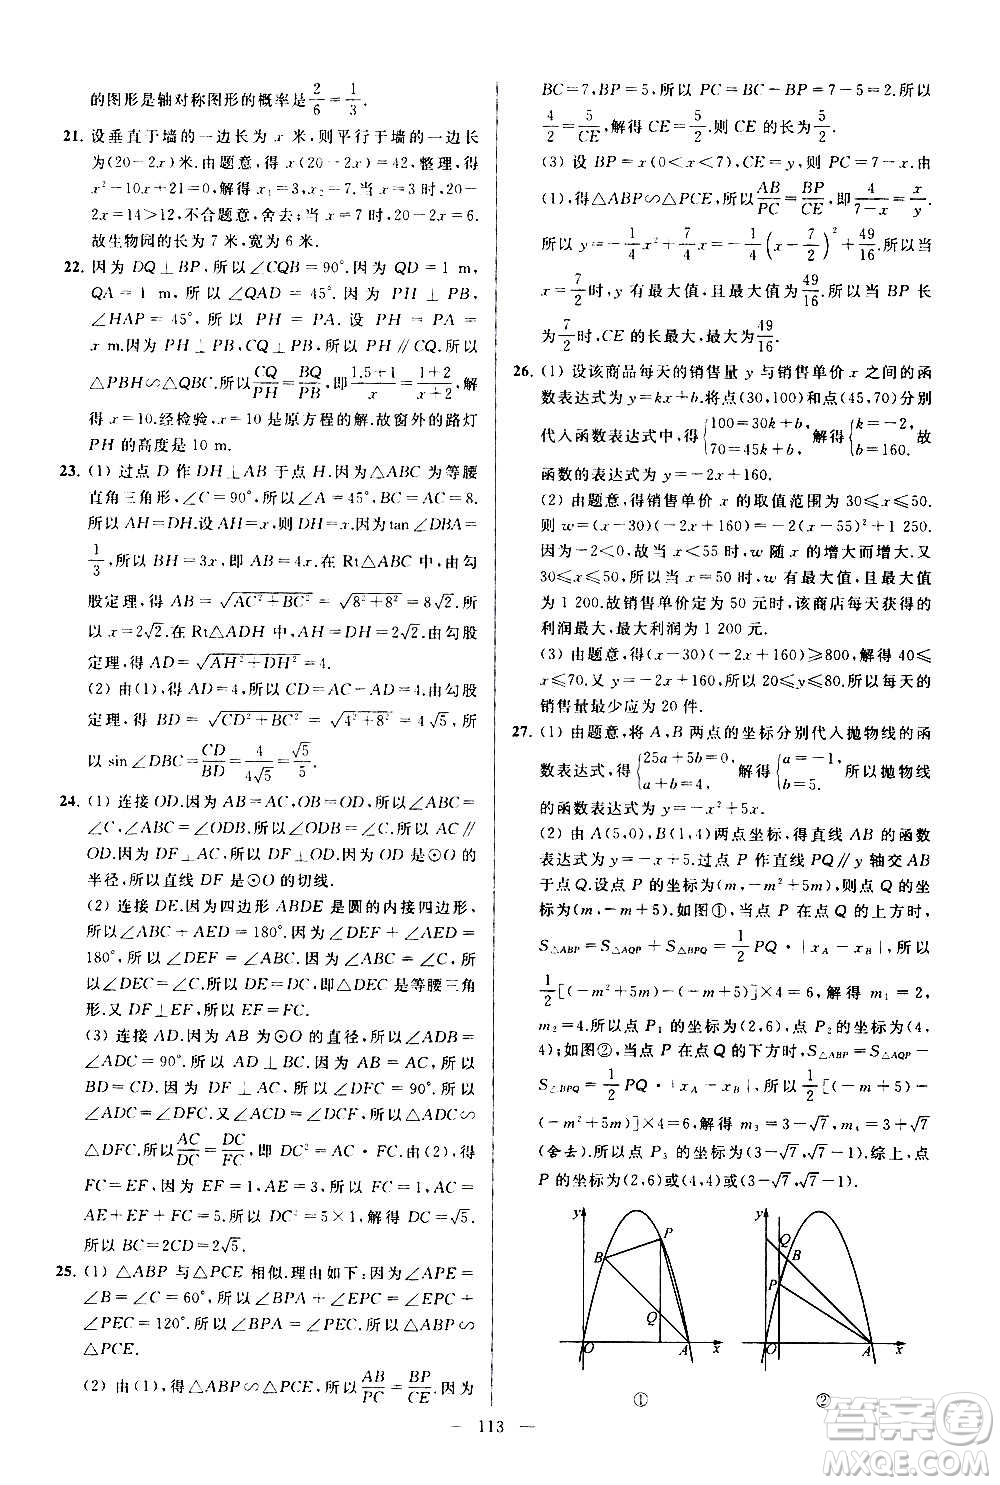 的图形是轴对称图形的概率是2/6=1/3.
21. 设垂直于墙的一边长为 x 米,则平行于墙的一边长
为(20-2x)米.由题意,得 x(20-2x)=42,整理,得
x²-10x+21=0,解得 x₁=3,x₂=7.当 x=3 时,20-
2x=14>12,不合题意,舍去;当 x=7 时,20-2x=6.
故生物园的长为 7 米,宽为 6 米.
22. 因为 DQ⊥BP,所以∠CQB=90°.因为 QD=1 m,
QA=1 m,所以∠QAD=45°.因为 PH⊥PB,
∠HAP=45°,所以 PH=PA.设 PH=PA=
x m.因为 PH⊥PB,CQ⊥PB,所以 PH∥CQ.所以
△PBH∽△QBC.所以CQ/PH=BQ/PB,即(1.5+1)/x=(1+2)/(x+2),解
得 x=10.经检验,x=10 是原方程的解.故窗外的路灯
PH 的高度是 10 m.
23. (1) 过点 D 作 DH⊥AB 于点 H.因为△ABC 为等腰
直角三角形,∠C=90°,所以∠A=45°,BC=AC=8.
所以 AH=DH.设 AH=x,则 DH=x.因为 tan∠DBA=
1/3,所以 BH=3x.所以 AB=4x.在 Rt△ABC 中,由勾
股定理,得 AB=√(AC²+BC²)=√(8²+8²)=8√2.所
以 x=2√2.在 Rt△ADH 中,AH=DH=2√2.由勾股
定理,得 AD=√(AH²+DH²)=4.
(2) 由(1),得 AD=4,所以 CD=AC-AD=4.由勾股
定理,得 BD=√(CD²+BC²)=√(4²+8²)=4√5,所
以 sin∠DBC=CD/BD=4/(4√5)=√5/5.
24. (1) 连接 OD.因为 AB=AC,OB=OD,所以∠ABC=
∠C,∠ABC=∠ODB.所以∠ODB=∠C.所以 AC∥
OD.因为 DF⊥AC,所以 DF⊥OD.因为 OD 是⊙O 的
半径,所以直线 DF 是⊙O 的切线.
(2) 连接 DE.因为四边形 ABDE 是圆的内接四边形,
所以∠ABC+∠AED=180°.因为∠DEF+∠AED=
180°,所以∠DEF=∠ABC.因为∠ABC=∠C,所以
∠DEC=∠C.所以 DE=DC,即△DEC 是等腰三角
形.又 DF⊥EF,所以 EF=FC.
(3) 连接 AD.因为 AB 为⊙O 的直径,所以∠ADB=
∠ADC=90°.所以 AD⊥BC.因为 AB=AC,所以
BD=CD.因为 DF⊥AC,所以∠DFC=90°.所以
∠ADC=∠DFC.又∠ACD=∠DCF,所以△ADC∽
△DFC.所以AC/DC=DC/FC.所以 DC²=AC·FC.由(2),得
FC=EF.因为 EF=1,AE=3,所以 FC=1,AC=
AE+EF+FC=5.所以 DC²=5×1,解得 DC=√5.
所以 BC=2CD=2√5.
25. (1) △ABP 与△PCE 相似.理由如下:因为∠APE=
∠B=∠C=60°,所以∠BPA+∠EPC=∠EPC+
∠PEC=120°.所以∠BPA=∠PEC.所以△ABP∽
△PCE.
(2) 由(1),得△ABP∽△PCE,所以AB/PC=BP/CE.因为
BC=7,BP=5,所以 PC=BC-BP=7-5=2.所以
4/2=5/CE,解得 CE=5/2.则 CE 的长为5/2.
(3) 设 BP=x(0<x<7),CE=y,则 PC=7-x.由
(1),得△ABP∽△PCE.所以AB/PC=BP/CE,即4/(7-x)=x/y.
所以 y=-1/4x²+7/4x=-1/4(x-7/2)²+49/16.所以当
x=7/2时,y 有最大值,最大值为49/16.所以当 BP 长
为7/2时,CE 的长最大,最大为49/16.
26. (1) 设该商品每天的销售量 y 与销售单价 x 之间的函
数表达式为 y=kx+b.将点(30,100)和点(45,70)分别
代入函数表达式中,得{100=30k+b, 70=45k+b, 解得{k=-2, b=160. 故
函数的表达式为 y=-2x+160.
(2) 由题意,得销售单价 x 的取值范围为 30≤x≤50.
则 w=(x-30)(-2x+160)=-2(x-55)²+1 250.
因为-2<0,故当 x<55 时,w 随 x 的增大而增大.又
30≤x≤50,所以当 x=50 时,w 有最大值,此最大值
为 1 200.故销售单价定为 50 元时,该商店每天获得的
利润最大,最大利润为 1 200 元.
(3) 由题意,得(x-30)(-2x+160)≥800,解得 40≤
x≤70.又 y=-2x+160,所以 20≤y≤80.所以每天的
销售量最少应为 20 件.
27. (1) 由题意,将 A,B 两点的坐标分别代入抛物线的函
数表达式,得{25a+5b=0, a+b=4, 解得{a=-1, b=5. 所以抛物线
的函数表达式为 y=-x²+5x.
(2) 由 A(5,0),B(1,4)两点坐标,得直线 AB 的函数
表达式为 y=-x+5.过点 P 作直线 PQ∥y 轴交 AB
于点 Q.设点 P 的坐标为(m,-m²+5m),则点 Q 的坐
标为(m,-m+5).如图①,当点 P 在点 Q 的上方时,
S△ABP=S△AQP+S△BPQ=1/2PQ·|x_A-x_B|,所以
1/2[(-m²+5m)-(-m+5)]×4=6,解得 m₁=2,
m₂=4.所以点 P₁ 的坐标为(2,6),点 P₂ 的坐标为(4,
4);如图②,当点 P 在点 Q 的下方时,S△ABP=S△AQP-
S△BPQ=1/2PQ·|x_A-x_B|,所以1/2[(-m+5)-
(-m²+5m)]×4=6,解得 m₃=3-√7,m₄=3+√7
(舍去).所以点 P₃ 的坐标为(3-√7,√7-1).综上,点
P 的坐标为(2,6)或(4,4)或(3-√7,√7-1).
y P B Q O A x
y Q B P O A x
① ②
— 113 —
答案圈
MXQE.COM